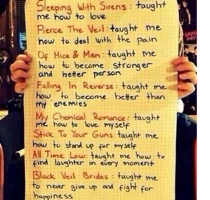 Sleeping With Sirens: taught
me how to love
Pierce The Veil: taught me
how to deal with the pain
Of Mice & Men: taught me
how to become stronger
and better person
Falling In Reverse: taught me
how to become better than
my enemies
My Chemical Romance: taught
me how to love myself
Stick To Your Guns: taught me
how to stand up for myself
All Time Low: taught me how to
find laughter in every moment
Black Veil Brides: taught me
to never give up and fight for
happiness